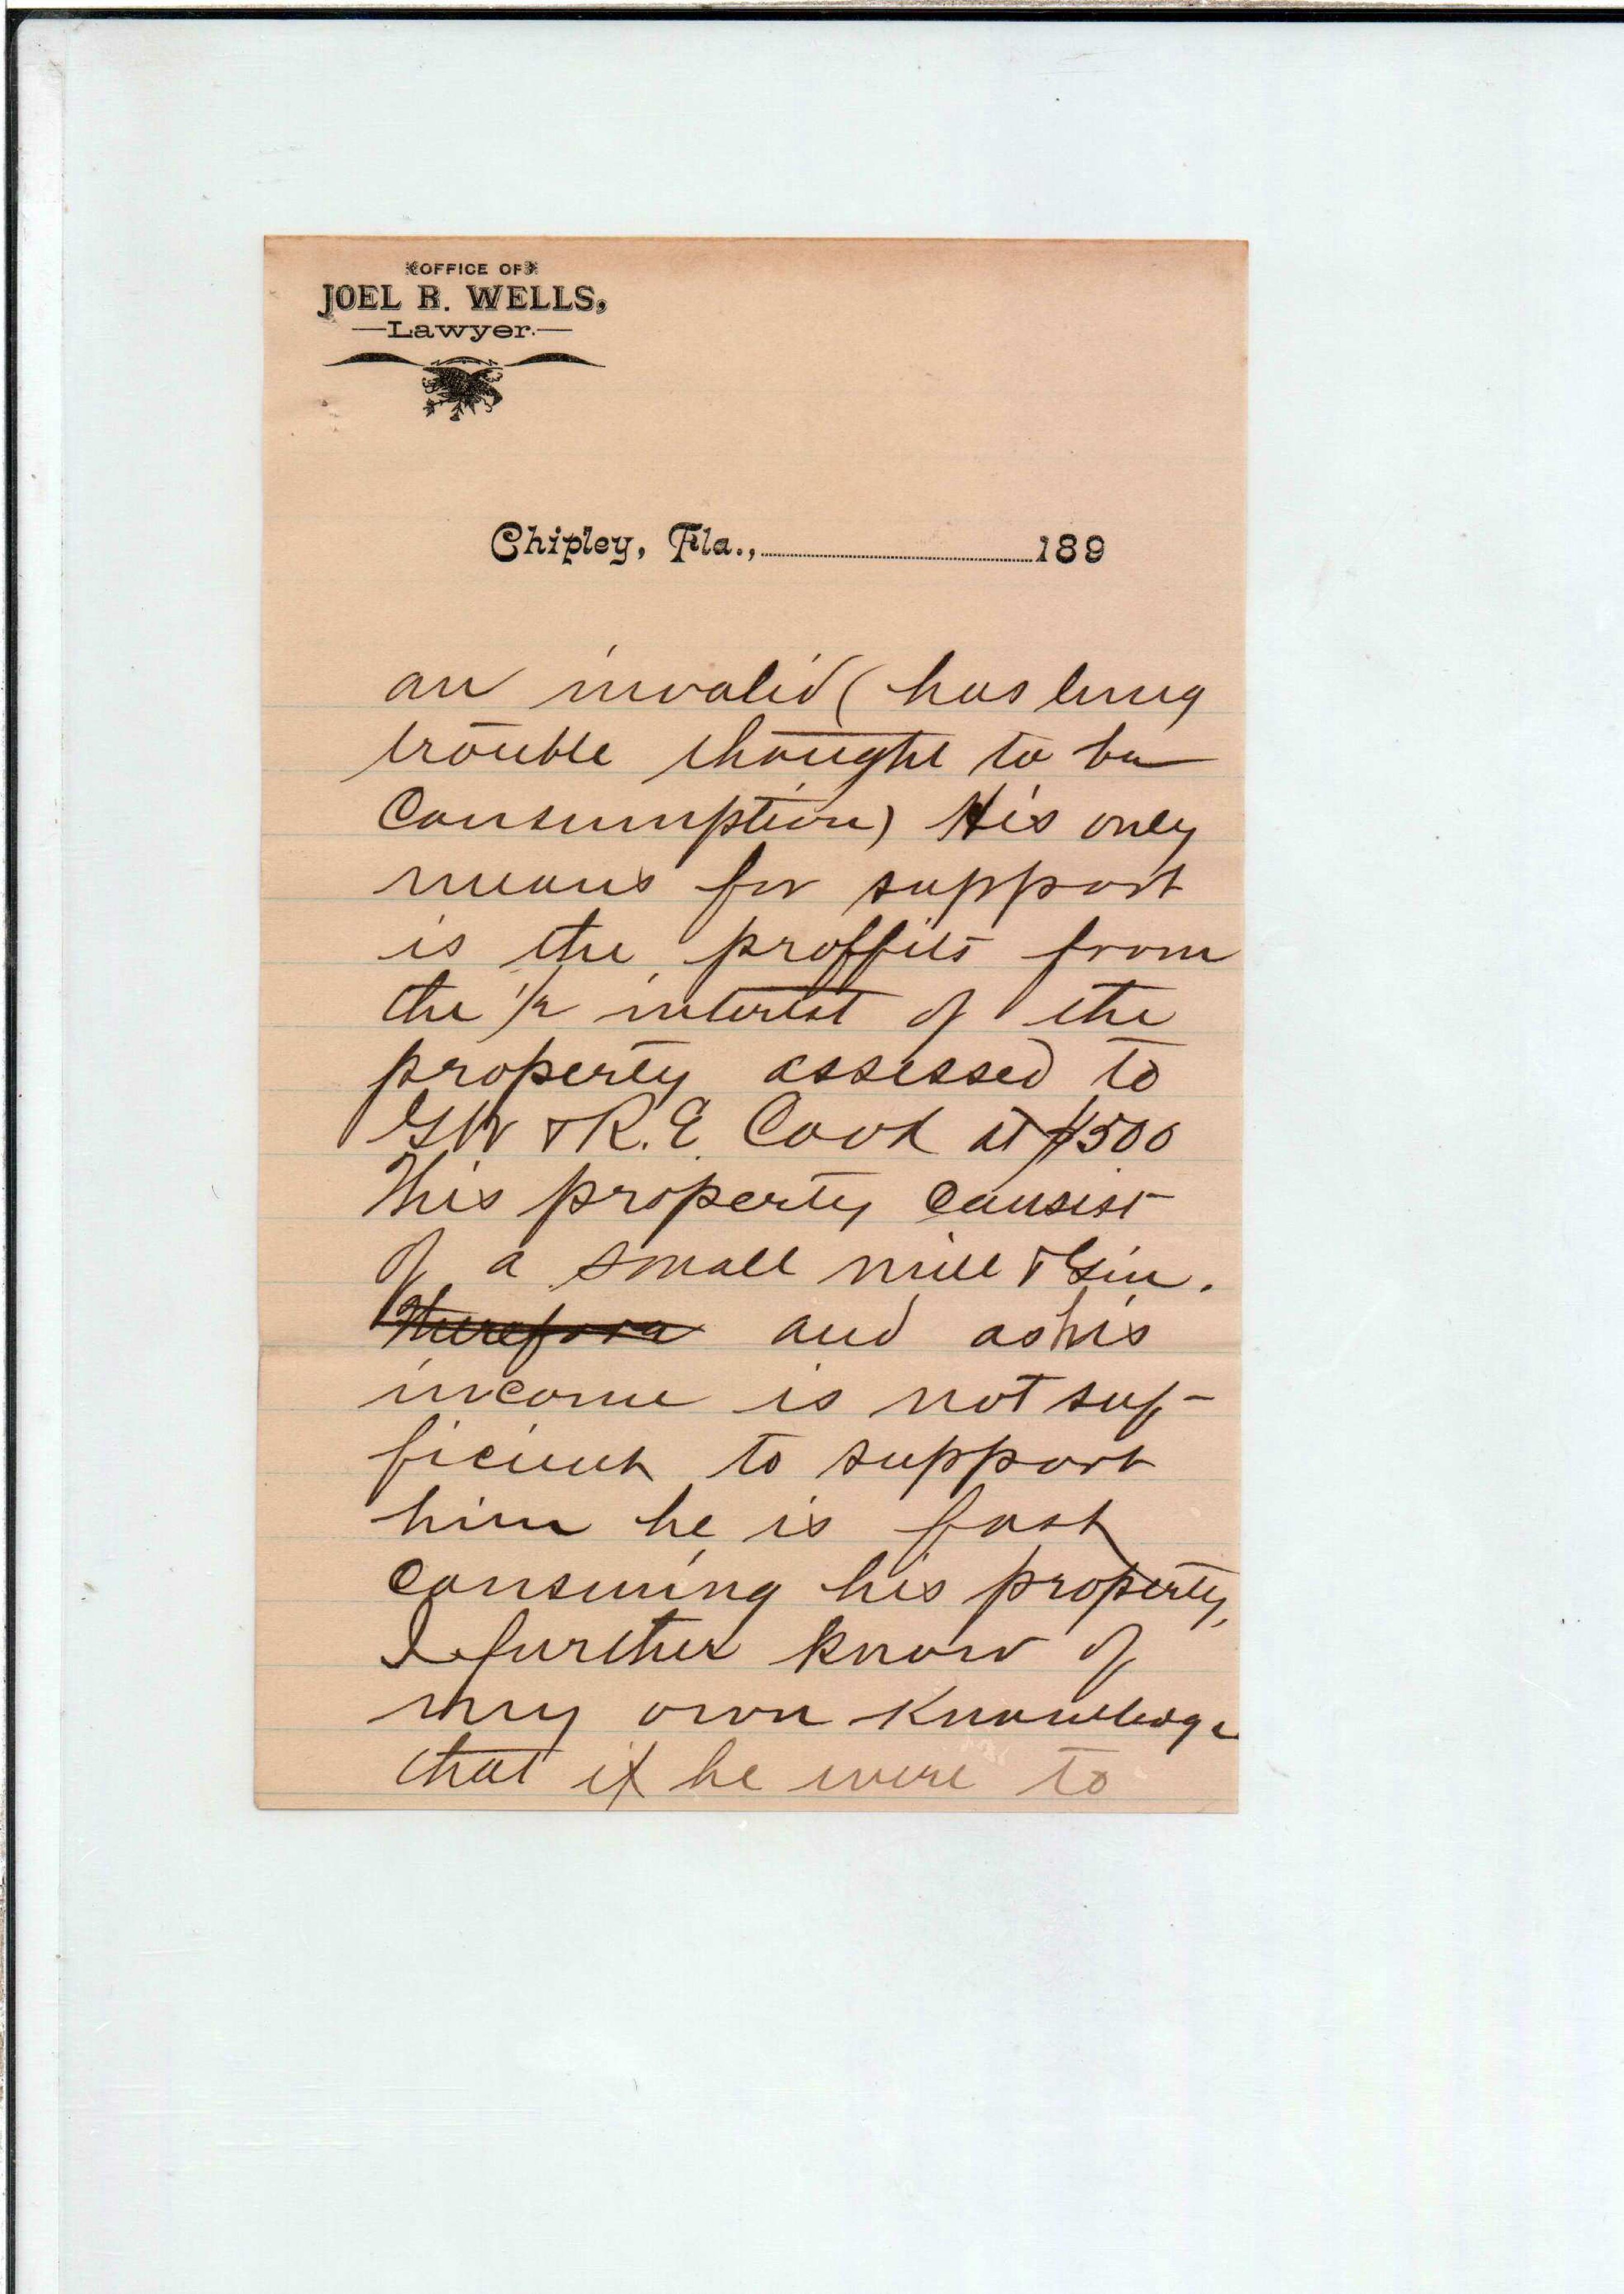 OFFICE OF
JOEL R. WELLS,
—Lawyer.—
Chipley, Fla.,..............................189
an invalid (has lung
trouble thought to be
consumption) His only
means for support
is the proffits from
the 1/2 interest of the
property assessed to
GW & R. E. Cook at $500
This property consist
of a small mill & Gin.
Therefore and as his
income is not suf-
ficient to support
him he is fast
consuming his property,
I further know of
my own knowledge
that if he were to